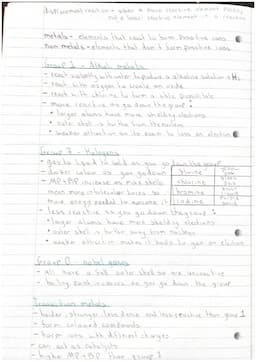 displacement reaction - when a more reactive element
out a less reactive element
metals - elements that react to form positive ions
non metals - elements that don't form positive ions
Group 1 - Alkali metals
- react violently with water to produce a alkaline solution + H₂
- react with oxygen to create an oxide
- react with chlorine to form a
- more reactive as you go down the group:
• larger atoms have more shielding electrons
• outer shell is further from nucleus
• weaker attraction so its easier to lose an electron
Group 7 - Halogens
• gas to liquid to solid as you go down the group
• darker colour as you go down
• MP + BP increase as more shells
mean more intermolecular forces so
more energy needed to overcome it
fluorine
chlorine green gas
bromine liquid
iodine purple solid
- less reactive as you go down the group:
• larger atoms have more shielding electrons
• outer shell is further away from nucleus
• weaker attraction makes it harder to gain an electron
Group 0 - nobel gases
- All have a full outer shell so are unreactive
- boiling point increases as you go down the group
Transition metals
- harder, stronger, less dense and less reactive than group 1
- form coloured compounds
- form ions with different charges
- can act as catalysts
- higher MP + BP than group 1